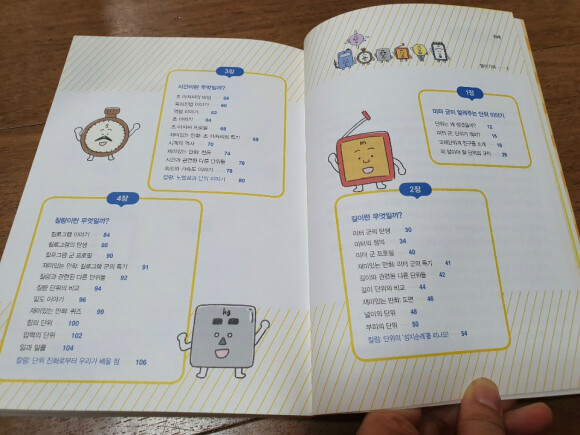 3장
시간이란 무엇일까?
초 아저씨의 비밀 56
60
역법 이야기 62
초 이야기 64
초 아저씨 프로필 68
재미있는 만화: 초 아저씨의 특기 69
시계의 역사 70
재미있는 만화: 74
시간과 관련된 다른 단위들 76
속도와 가속도 이야기 78
칼럼: 노벨상과 단위 이야기 80
4장
질량이란 무엇일까?
킬로그램 이야기 84
킬로그램의 탄생 86
킬로그램 군 프로필 90
재미있는 만화: 킬로그램 군의 특기 91
질량과 관련된 다른 단위들 92
질량 단위의 비교 94
밀도 이야기 96
재미있는 만화: 퀴즈 99
힘의 단위 100
압력의 단위 102
일과 일률 104
칼럼: 단위 진화로부터 우리가 배울 점 106
kg
차례
들어가며
1장
미터 군이 알려주는 단위 이야기
단위는 왜 생겼을까? 12
미터 군, 단위가 뭐야? 16
18
꼭 알아야 할 단위의 규칙 26
2장
길이란 무엇일까?
미터 군의 탄생 30
미터의 정의 34
미터 군 프로필 40
재미있는 만화: 미터 군의 특기 41
길이와 관련된 다른 단위들 42
길이 단위의 비교 44
재미있는 만화: 도면 46
넓이의 단위 48
부피의 단위 50
칼럼: 단위의 '성지순례'를 떠나요! 54